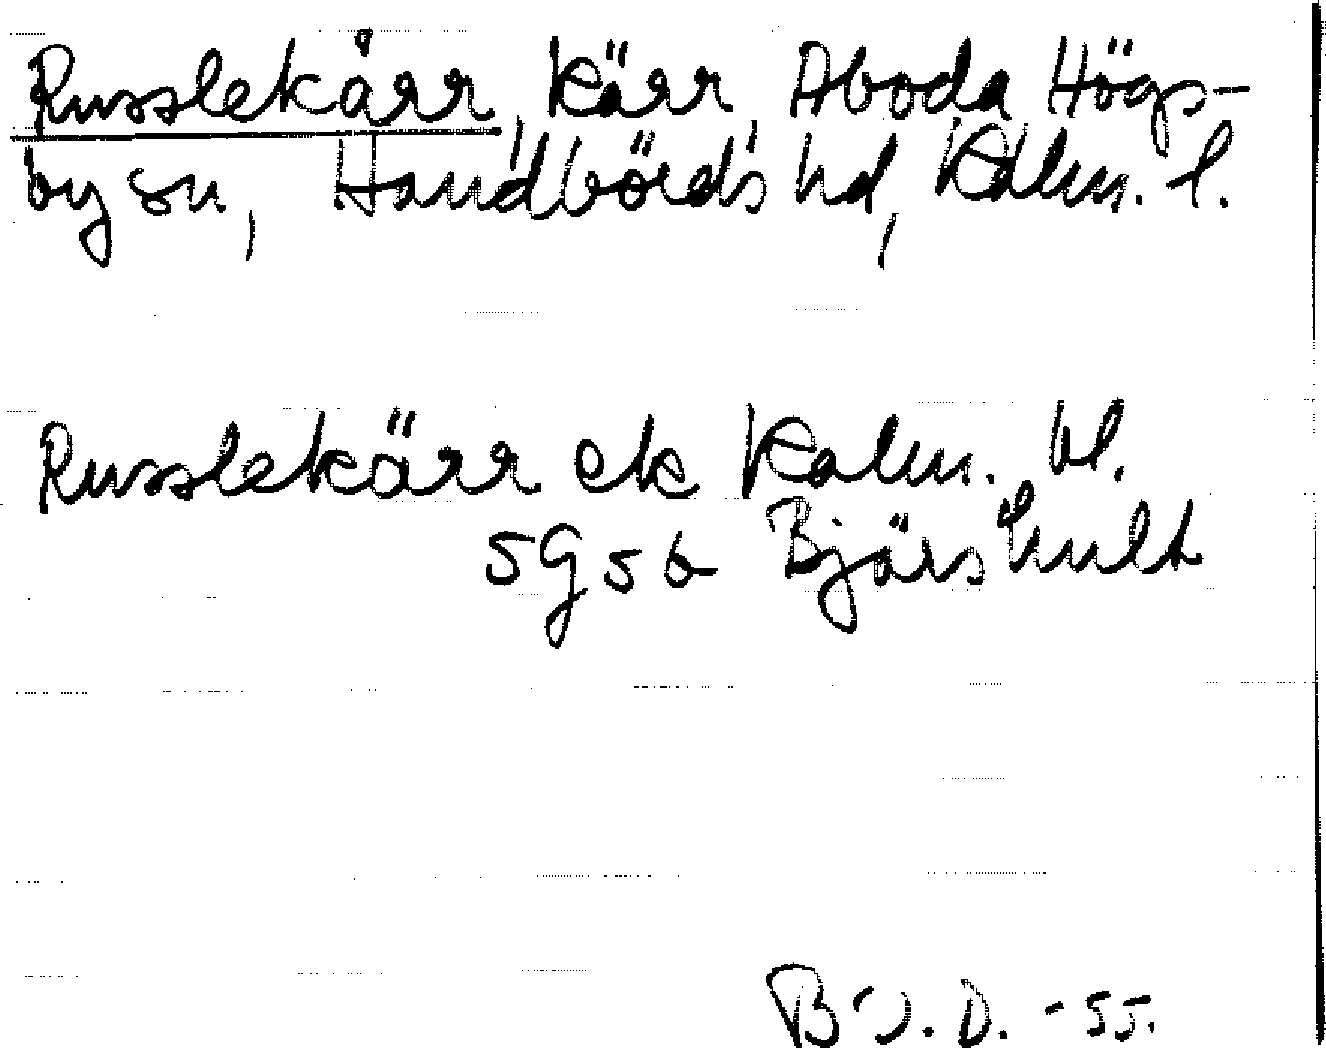 Russlekärr, kärr, Aboda Högs-
by sn, Handbörds hd, Kalm. l.
Russlekärr ek Kalm. bl.
5G5b Bjärshult
B J. D. -55.